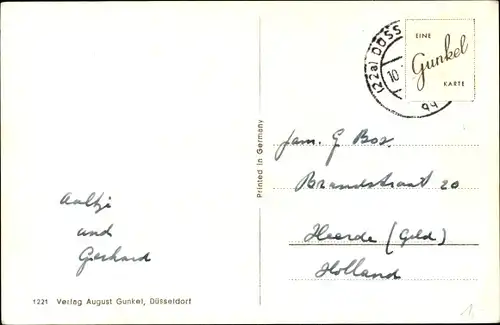 EINE
Gunkel
KARTE
(22a) DÜSS
10.
Printed in Germany
fam. G Bos
Brandstraat 20
Heerde (Geld)
Holland
Aaltje
und
Gerhard
1221 Verlag August Gunkel, Düsseldorf